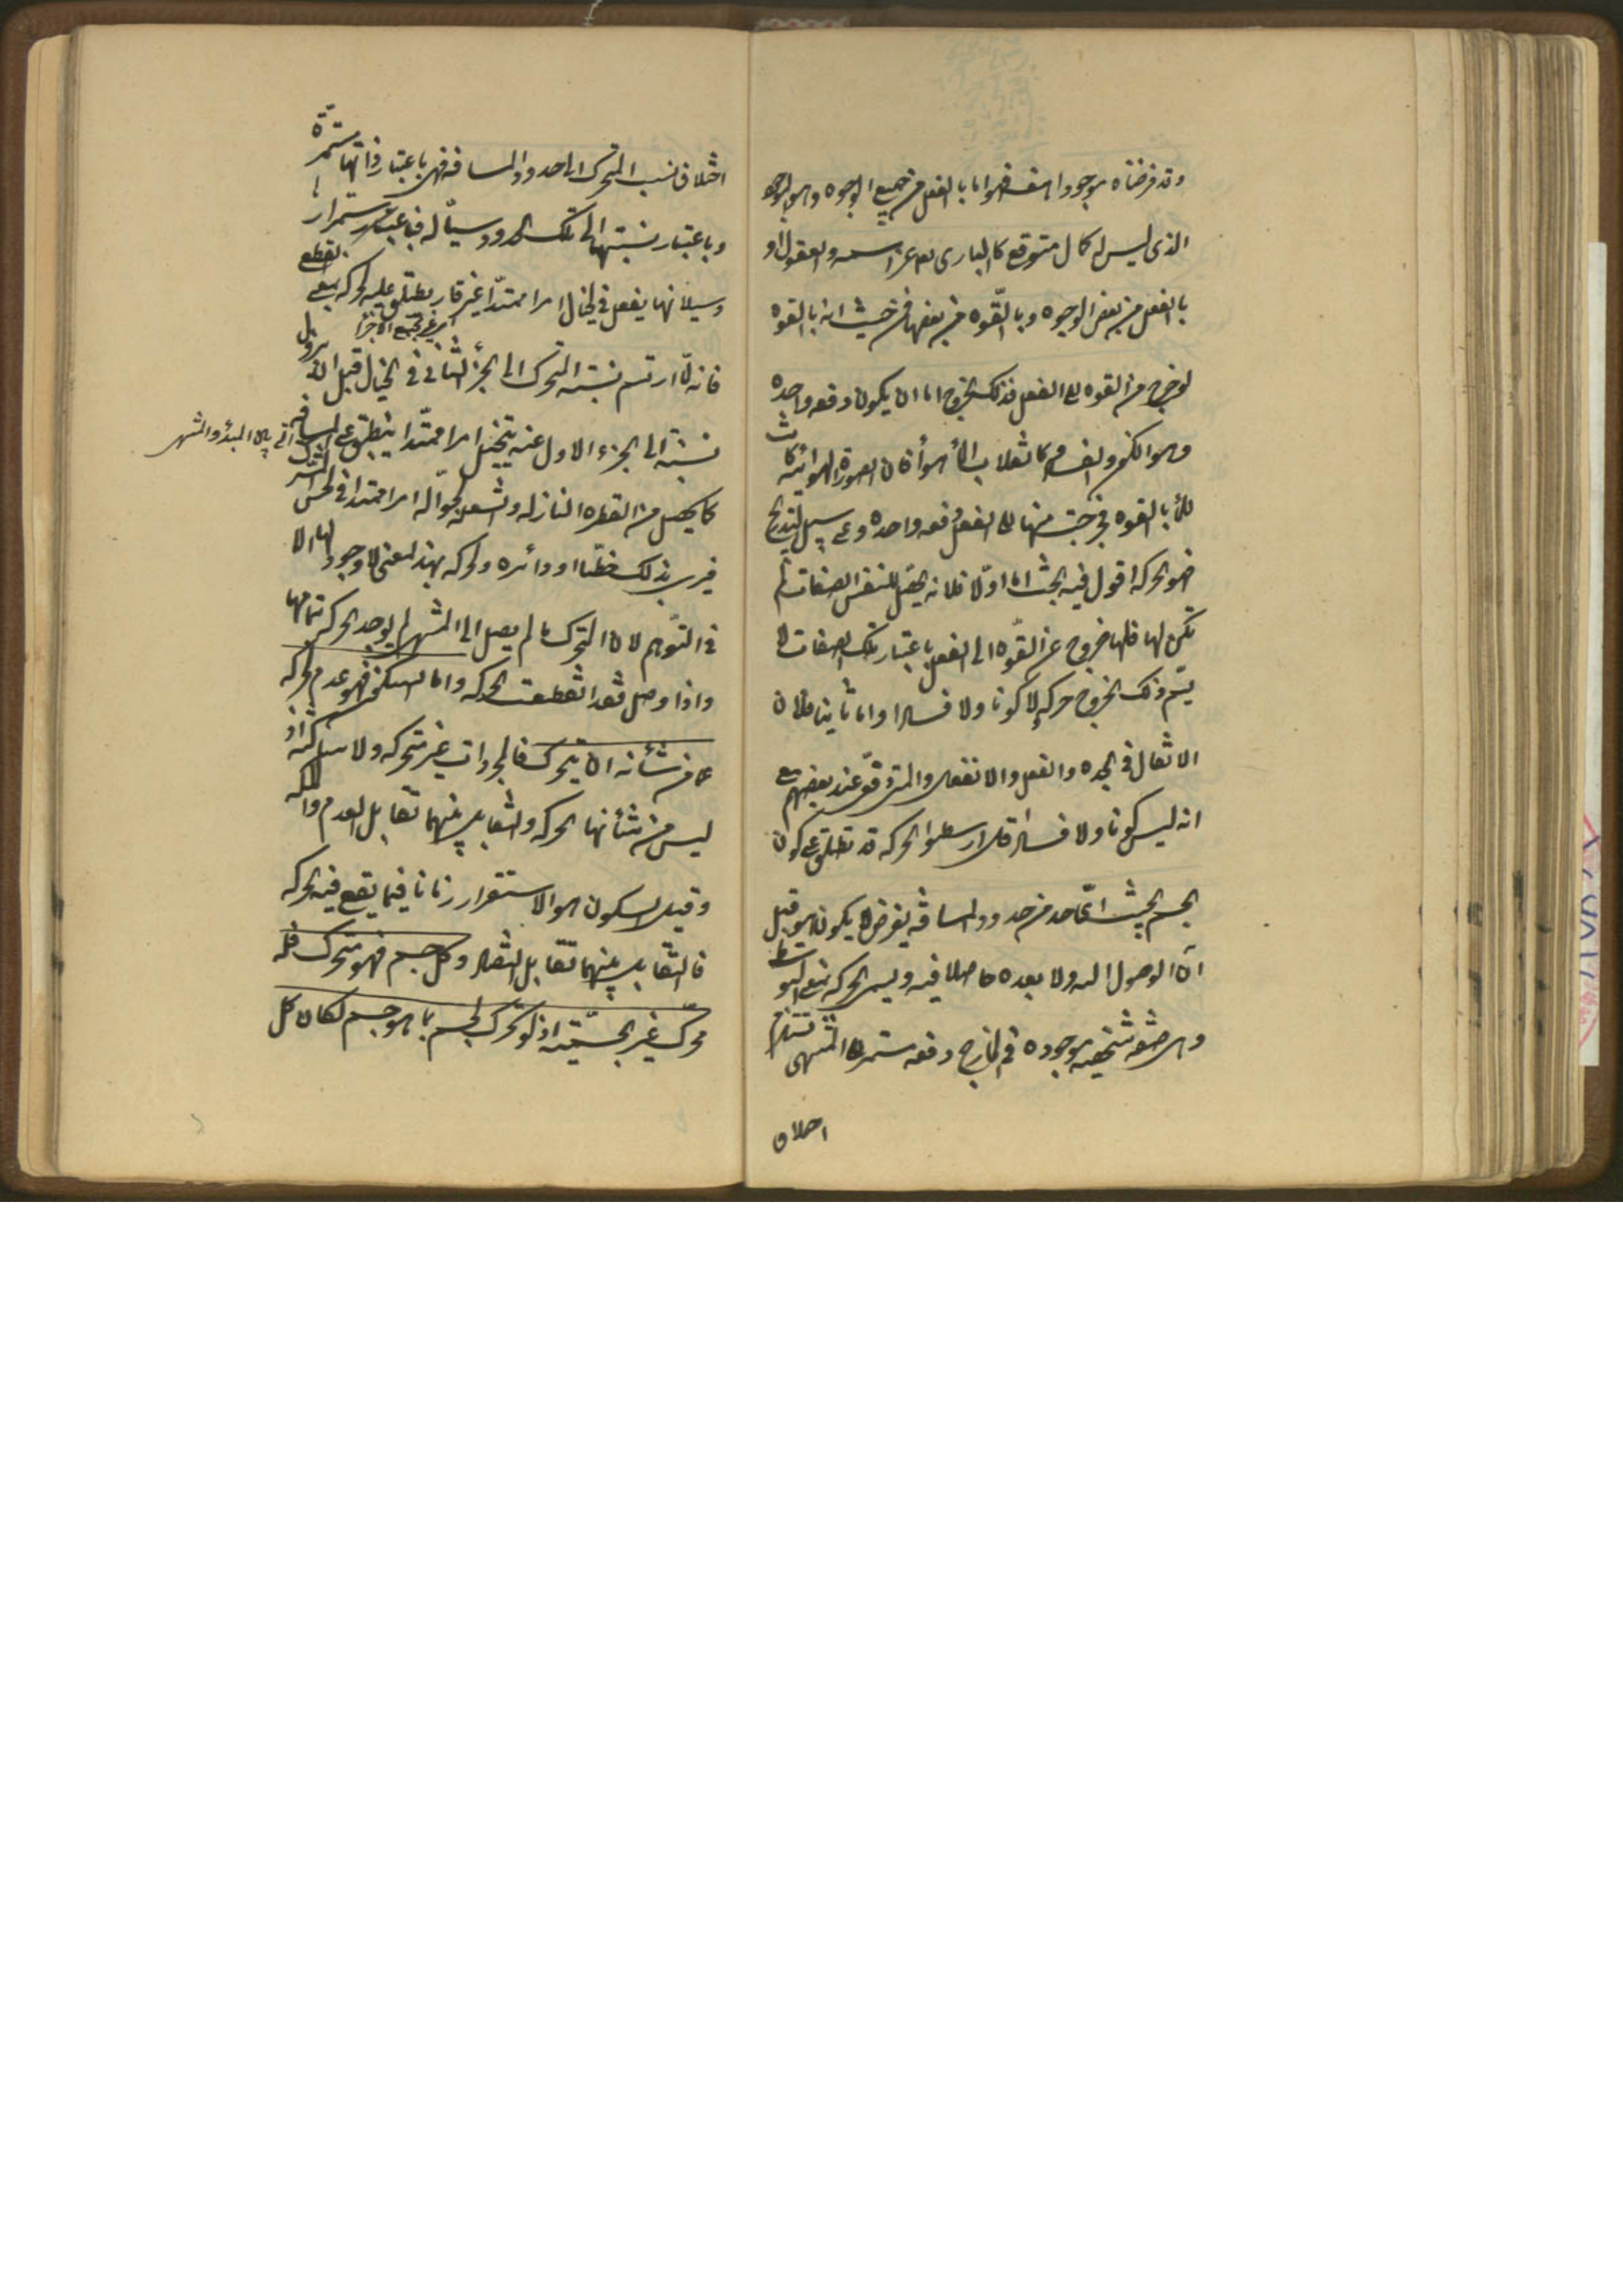 وقد فرضناه موجودا هف فهو اما بالفعل من جميع الوجوه وهو الموجود
الذي ليس له كمال متوقع كالباري عز اسمه والعقول او
بالفعل من بعض الوجوه وبالقوة من بعضها فمن حيث انه بالقوة
لو خرج من القوه الى الفعل فذلك الخروج اما ان يكون دفعه واحده
وهو الكون والفساد كانقلاب الماء هواء فان الصورة الهوائية كانت
للماء بالقوه فخرجت منها الى الفعل دفعه واحده وعلى سبيل التدريج
فهو الحركه اقول فيه بحث اما اولا فلانه يحصل للنفس الصفات لم
تكن لها فلها خروج عن القوة الى الفعل باعتبار تلك الصفات لا
يسمى ذلك الخروج حركه لا كونا ولا فسادا واما ثانيا فلان
الانتقال في الجده والفعل والانفعال والمتى دفعى عند بعضهم مع
انه ليس كونا ولا فسادا قال ارسطو الحركه قد تطلق على كون
الجسم بحيث اى حد من حدود المسافه يفرض لا يكون هو قبل
آن الوصول اليه ولا بعده حاصلا فيه ويسمى الحركه بمعنى التوسط
وهى صفه شخصيه موجوده في الخارج دفعه مستمره الى المنتهى تستلزم
اختلاف
اختلاف نسب المتحرك الى حدود المسافه فهي باعتبار ذاتها مستمرة
وباعتبار نسبتها الى تلك الحدود سيالة فباعتبار استمرارها
وسيلانها يفعل في الخيال امرا ممتدا غير قار يطلق عليه الحركه بمعنى القطع
اى غير مجتمع الاجزاء
فانه لما ارتسم نسبه المتحرك الى الجزء الثاني في الخيال قبل ان يزول
نسبته الى الجزء الاول عنه يتخيل امرا ممتدا ينطبق على المسافه
التي بين المبدء والمنتهى
كما يحصل من القطره النازله والشعله الجوالة امرا ممتدا في الحس المشترك
فيرى بذلك خطا او دائره والحركه بهذا المعنى لا وجود لها الا
في التوهم لان المتحرك ما لم يصل الى المنتهى لم يوجد الحركه بتمامها
واذا وصل فقد انقطعت الحركه واما السكون فهو عدم الحركه
عما من شأنه ان يتحرك فالمجردات غير متحركه ولا ساكنه اذ
ليس من شأنها الحركه والتقابل بينهما تقابل العدم والملكه
وقيل السكون هو الاستقرار زمانا فيما يقع فيه الحركه
فالتقابل بينهما تقابل التضاد وكل جسم فهو متحرك فله
محرك غير الجسمية اذ لو تحرك الجسم بما هو جسم لكان كل